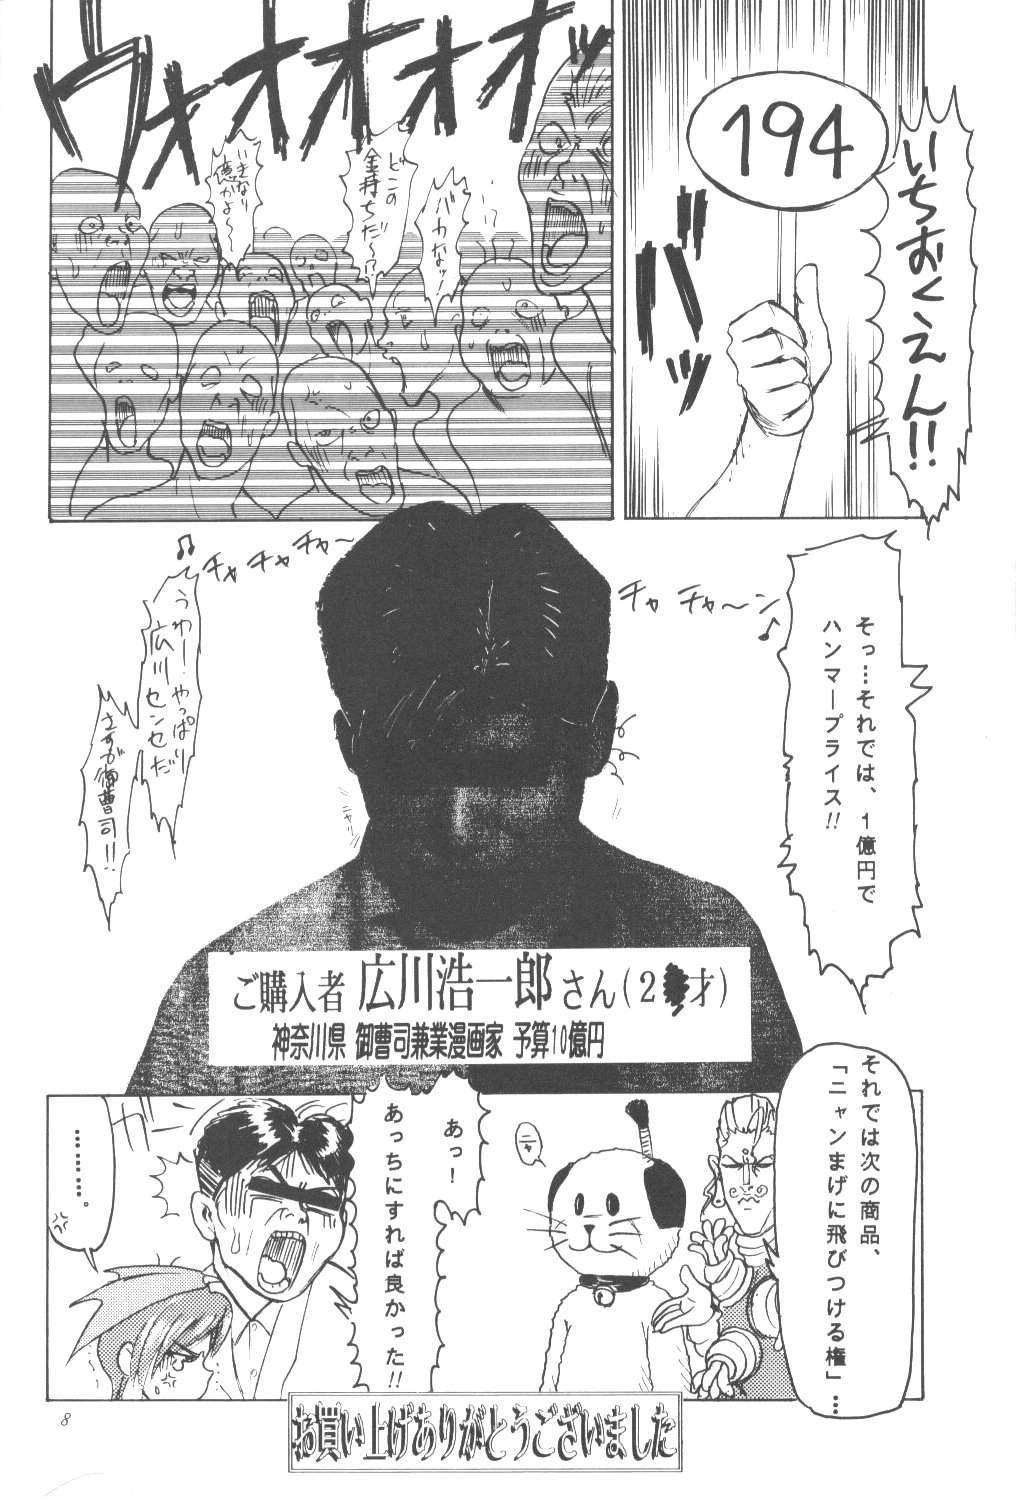 194
いちおくえん!!
バッ
ウォオオオオッ
バカなッ!
どこの
金持ちだ〜!?
いきなり
億かよ〜
そっ…それでは、1億円で
ハンマープライス!!
チャ チャ チャ〜
チャ チャ〜ン♪
うわー!やっぱり
広川センセだ
さすが御曹司!!
ニャリ
ご購入者 広川浩一郎さん(2 才)
神奈川県 御曹司兼業漫画家 予算10億円
それでは次の商品、
「ニャンまげに飛びつける権」…
ニャ
あっ!
あっちにすれば良かった!!
………。
お買い上げありがとうございました
8